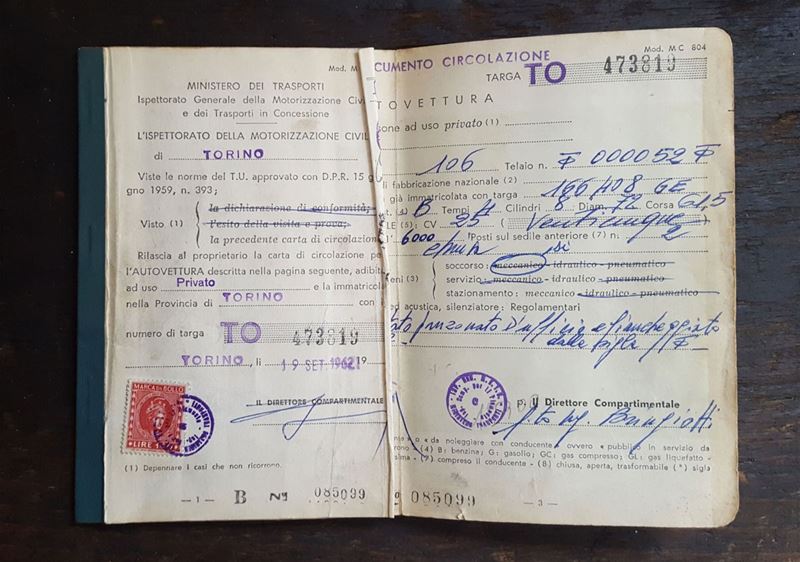 Mod. M
MINISTERO DEI TRASPORTI
Ispettorato Generale della Motorizzazione Civi
e dei Trasporti in Concessione
L'ISPETTORATO DELLA MOTORIZZAZIONE CIVIL
di TORINO
Viste le norme del T.U. approvato con D.P.R. 15 g
gno 1959, n. 393;
la dichiarazione di conformità;
Visto (1) l'esito della visita e prova;
la precedente carta di circolazione
Rilascia al proprietario la carta di circolazione pe
L'AUTOVETTURA descritta nella pagina seguente, adibit
ad uso Privato e la immatricol
nella Provincia di TORINO con i
numero di targa TO 473819
TORINO, li 19 SET. 1962 19
IL DIRETTORE COMPARTIMENTALE
MARCA DA BOLLO
LIRE
(1) Depennare i casi che non ricorrono.
— 1 — B Nº 085099
Mod. MC 804
CUMENTO CIRCOLAZIONE
TARGA TO 473819
TOVETTURA
one ad uso privato (1)
106 Telaio n. F 000052 F
i fabbricazione nazionale (2)
già immatricolata con targa 166408 GE
B Tempi 4 Cilindri 8 Diam. 72 Corsa 61,5
LE (5): CV 23 (Ventitre
6000 Posti sul sedile anteriore (7) n. 2
soccorso: meccanico - idraulico - pneumatico
eni (3) servizio: meccanico - idraulico - pneumatico
stazionamento: meccanico - idraulico - pneumatico
ad acustica, silenziatore: Regolamentari
punzonato d'ufficio e fiancheggiato
dalla sigla F
p. Il Direttore Compartimentale
nte » o « da noleggiare con conducente » ovvero « pubblico in servizio da
rono - (4) B: benzina; G: gasolio; GC: gas compresso; GL: gas liquefatto -
sima - (7) compreso il conducente - (8) chiusa, aperta, trasformabile (*) sigla
085099
— 3 —